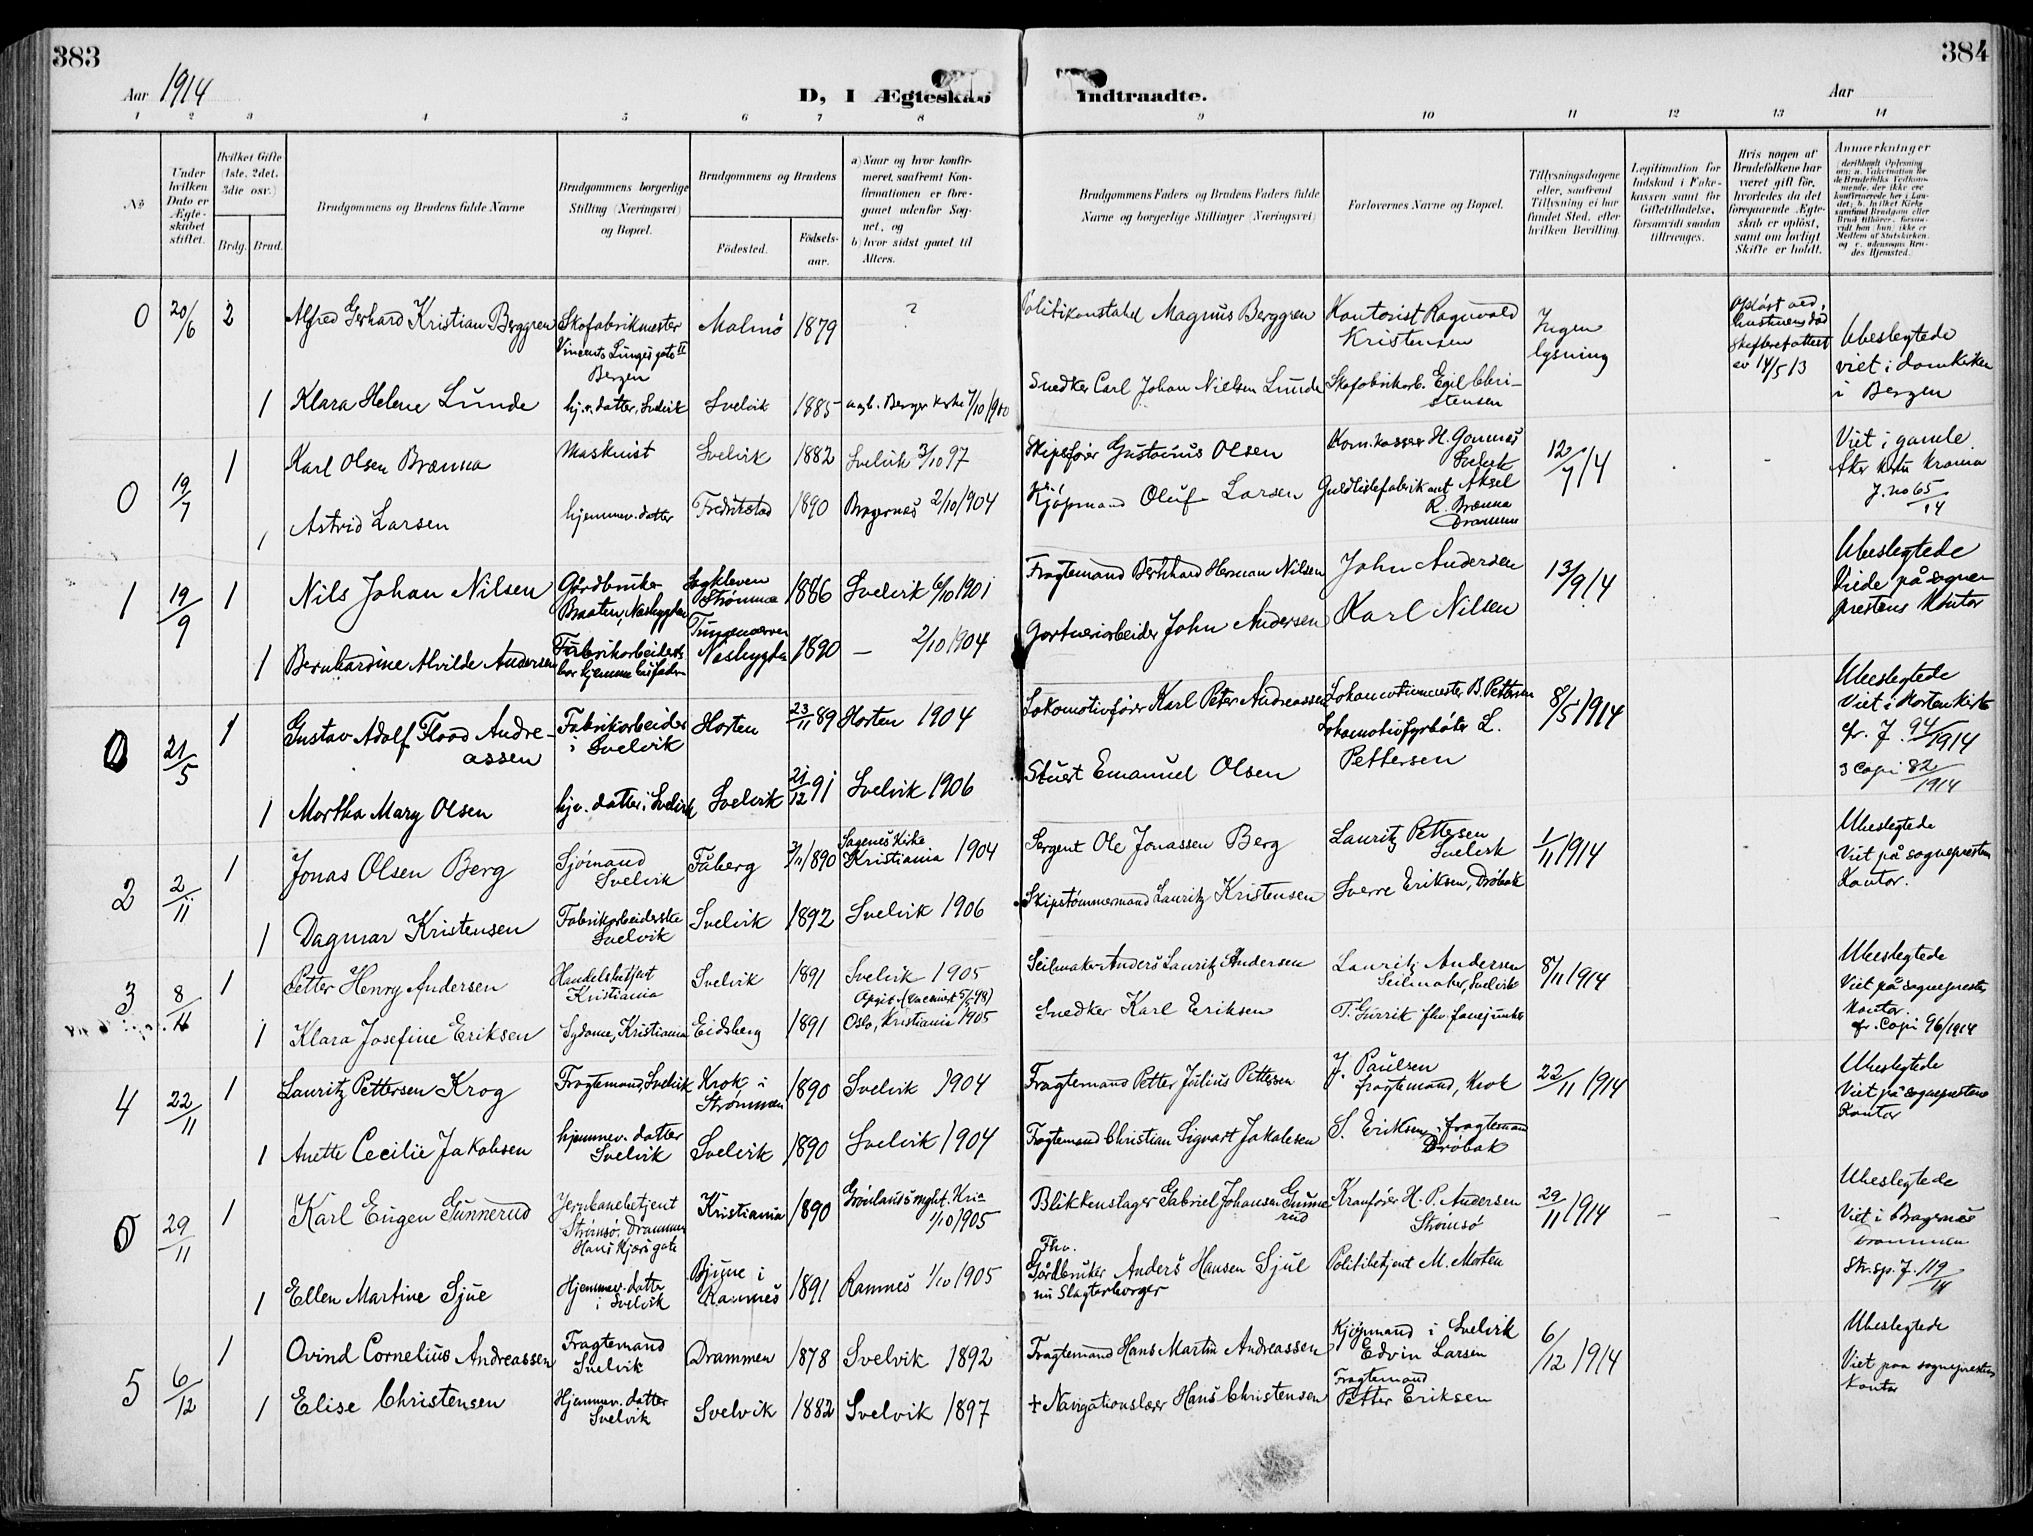 383
384
Aar 1914
D, I Ægteskab
Indtraadte.
Aar
1 2 3 4 5 6 7 8
9 10 11 12 13 14
№
Under hvilken Dato er Ægteskabet stiftet.
Hvilket Gifte (1ste, 2det, 3die osv.)
Brdg. Brud.
Brudgommens og Brudens fulde Navne
Brudgommens borgerlige Stilling (Næringsvei) og Bopæl.
Brudgommens og Brudens
Fødested.
Fødsels-aar.
a) Naar og hvor konfirmeret, saafremt Konfirmationen er foregaaet udenfor Sognet, og
b) hvor sidst gaaet til Alters.
Brudgommens Faders og Brudens Faders fulde Navne og borgerlige Stillinger (Næringsvei)
Forlovernes Navne og Bopæl.
Tillysningsdagene eller, saafremt Tillysning ei har fundet Sted, efter hvilken Bevilling.
Legitimation for Indskud i Enkekassen samt for Giftetilladelse, forsaavidt saadan tiltrænges.
Hvis nogen af Brudefolkene har været gift før, hvorledes da det foregaaende Ægteskab er opløst, samt om lovligt Skifte er holdt.
Anmerkninger
0 20/6 2 Alfred Gerhard Kristian Berggren Skofabrikmester Malmö 1879 ? Politikonstabel Magnus Berggren Kontorist Ragnvald Kristensen Ingen lysning
Bergen
Ubeslegtede viet i domkirken i Bergen
1 Klara Helene Lunde hj.v. datter, Svelvik Svelvik 1885 Berger kirke 7/10 1900 Snedker Carl Johan Nielsen Lunde Skofabrikarb. Egil Christensen
0 19/7 1 Karl Olsen Brænna Maskinist Svelvik 1882 Svelvik 3/10 97 Skipsfører Gustavus Olsen Svelvik 12/7 14
Viet i gamle Aker kirke Krania J. no 65/14
1 Astrid Larsen hjemmev. datter Fredrikstad 1890 Bragernes 2/10 1904 Kjøpmand Oluf Larsen Guldlistefabrikant Aksel R. Brænna Drammen
1 19/9 1 Nils Johan Nilsen Gårdbruker Braaten, Nesbygden Strømmen 1886 Svelvik 6/10 1901 Fragtemand Bernhard Herman Nilsen John Andersen 13/9 14
Ubeslegtede Viede på sogneprestens kontor
1 Bernhardine Alvilde Andersen Nesbygden 1890 — 2/10 1904 Gartneriarbeider John Andersen Karl Nilsen
0 21/5 1 Gustav Adolf Flood Andreassen Fabrikarbeider i Svelvik Horten 23/11 89 Horten 1904 Lokomotivfører Karl Peter Andreassen Lokomotivmester B. Pettersen 8/5 1914
Lokomotivfyrbøter L. Pettersen
Ubeslegtede Viet i Horten kirke cfr. J. 94/1914
3 Copi 82/1914
1 Martha Mary Olsen hjv. datter i Svelvik Svelvik 21/12 91 Svelvik 1906 Stuert Emanuel Olsen
2 2/11 1 Jonas Olsen Berg Sjømand Svelvik Fåberg 1890 Sagenes kirke Kristiania 1904 Sergent Ole Jonassen Berg Lauritz Pettersen Svelvik 1/11 1914
Ubeslegtede Viet på sogneprestens kontor.
1 Dagmar Kristensen Fabrikarbeiderske Svelvik Svelvik 1892 Svelvik 1906 Skipstømmermand Lauritz Kristensen Sverre Eriksen, Drøbak
3 8/11 1 Petter Henry Andersen Handelsbetjent Kristiania Svelvik 1891 Svelvik 1905 Seilmaker Anders Lauritz Andersen Lauritz Andersen Seilmaker, Svelvik 8/11 1914
Ubeslegtede Viet på sogneprestens kontor. cfr. Copi 96/1914
1 Klara Josefine Eriksen Sydame, Kristiania Eidsberg 1891 Oslo, Kristiania 1905 Snedker Karl Eriksen
4 22/11 1 Lauritz Pettersen Krog Fragtemand, Svelvik Krok i Strømmen 1890 Svelvik 1904 Fragtemand Petter Julius Pettersen J. Paulsen fragtemand, Krok 22/11 1914
Ubeslegtede Viet på sogneprestens kontor
1 Anette Cecilie Jakobsen hjemmev. datter Svelvik Svelvik 1890 Svelvik 1904 Fragtemand Christian Sigvart Jakobsen S. Eriksen, fragtemand Drøbak
0 29/11 1 Karl Eugen Gunnerud Jernbanebetjent Strømsø, Drammen Hans Kjærs gate Kristiania 1890 1/10 1905 Blikkenslager Gabriel Johansen Gunnerud Kranfører H. P. Andersen Strømsø 29/11 1914 – –
Ubeslegtede Viet i Bragernes Drammen
Str.sp. J. 119/14
1 Ellen Martine Sjue Hjemmev. datter i Svelvik Bjune i Ramnes 1891 Ramnes 1/10 1905 Fhv. Gårdbruker Anders Hansen Sjul nu Slagterborger Politibetjent M. Morten
5 6/12 1 Ovind Cornelius Andreassen Fragtemand Svelvik Drammen 1878 Svelvik 1892 Fragtemand Hans Martin Andreassen Kjøpmand i Svelvik Edvin Larsen 6/12 1914
Ubeslegtede Viet paa sogneprestens kontor
1 Elise Christensen Hjemmev. datter Svelvik Svelvik 1882 Svelvik 1897 + Navigationslærer Hans Christensen Fragtemand Petter Eriksen